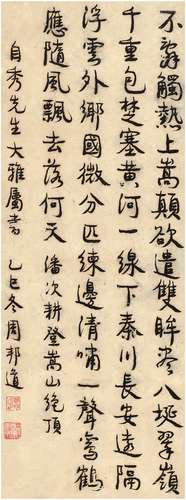 不辭觸熱上嵩顛欲遣雙眸尽八埏翠嶺
千重包楚塞黄河一線下秦川長安遠隔
浮雲外鄉國微分匹練邊清嘯一聲鸞鶴
應隨風飄去落何天 潘次耕登嵩山絕頂
自秀先生大雅屬書 乙巳冬周邦道